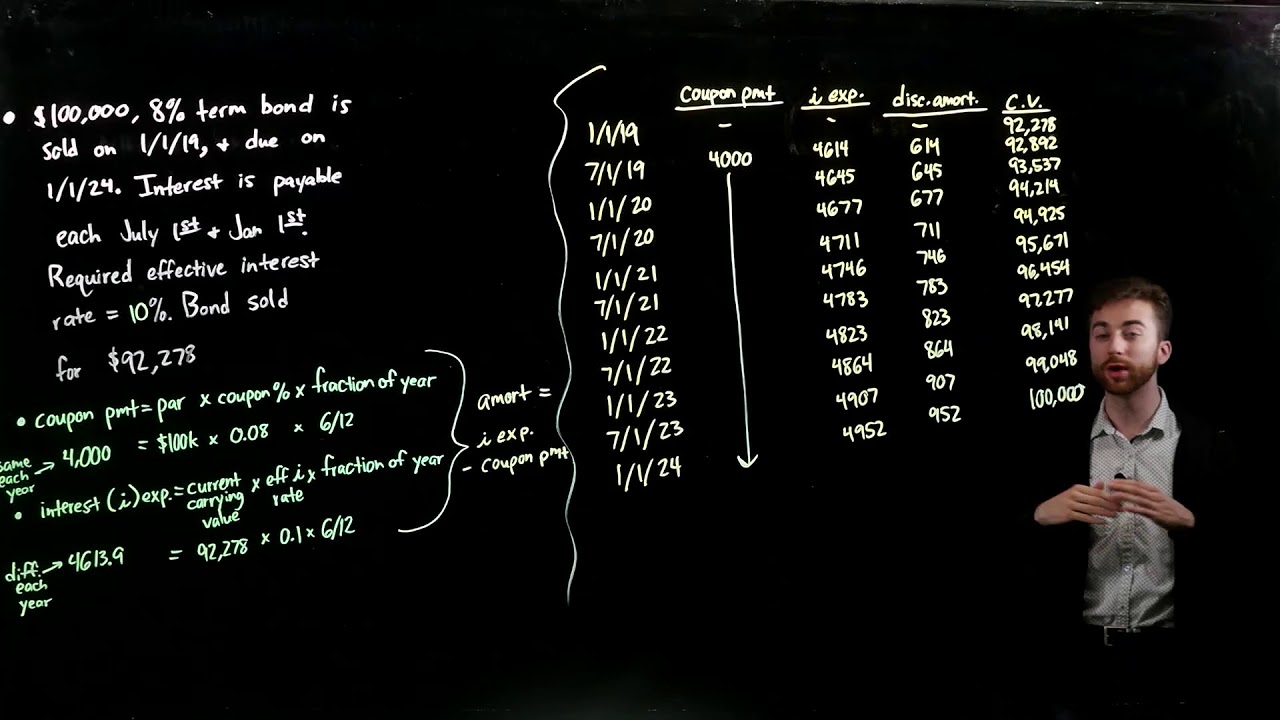 • $100,000, 8% term bond is
sold on 1/1/19, + due on
1/1/24. Interest is payable
each July 1st + Jan 1st.
Required effective interest
rate = 10%. Bond sold
for $92,278
• coupon pmt = par x coupon% x fraction of year
same each year → 4,000 = $100k x 0.08 x 6/12
• interest (i) exp. = current carrying value x eff i rate x fraction of year
diff. each year → 4613.9 = 92,278 x 0.1 x 6/12
amort =
i exp.
- coupon pmt
coupon pmt i exp. disc. amort. C.V.
1/1/19 - - - 92,278
7/1/19 4000 4614 614 92,892
1/1/20 4645 645 93,537
7/1/20 4677 677 94,214
1/1/21 4711 711 94,925
7/1/21 4746 746 95,671
1/1/22 4783 783 96,454
7/1/22 4823 823 97,277
1/1/23 4864 864 98,141
7/1/23 4907 907 99,048
1/1/24 4952 952 100,000